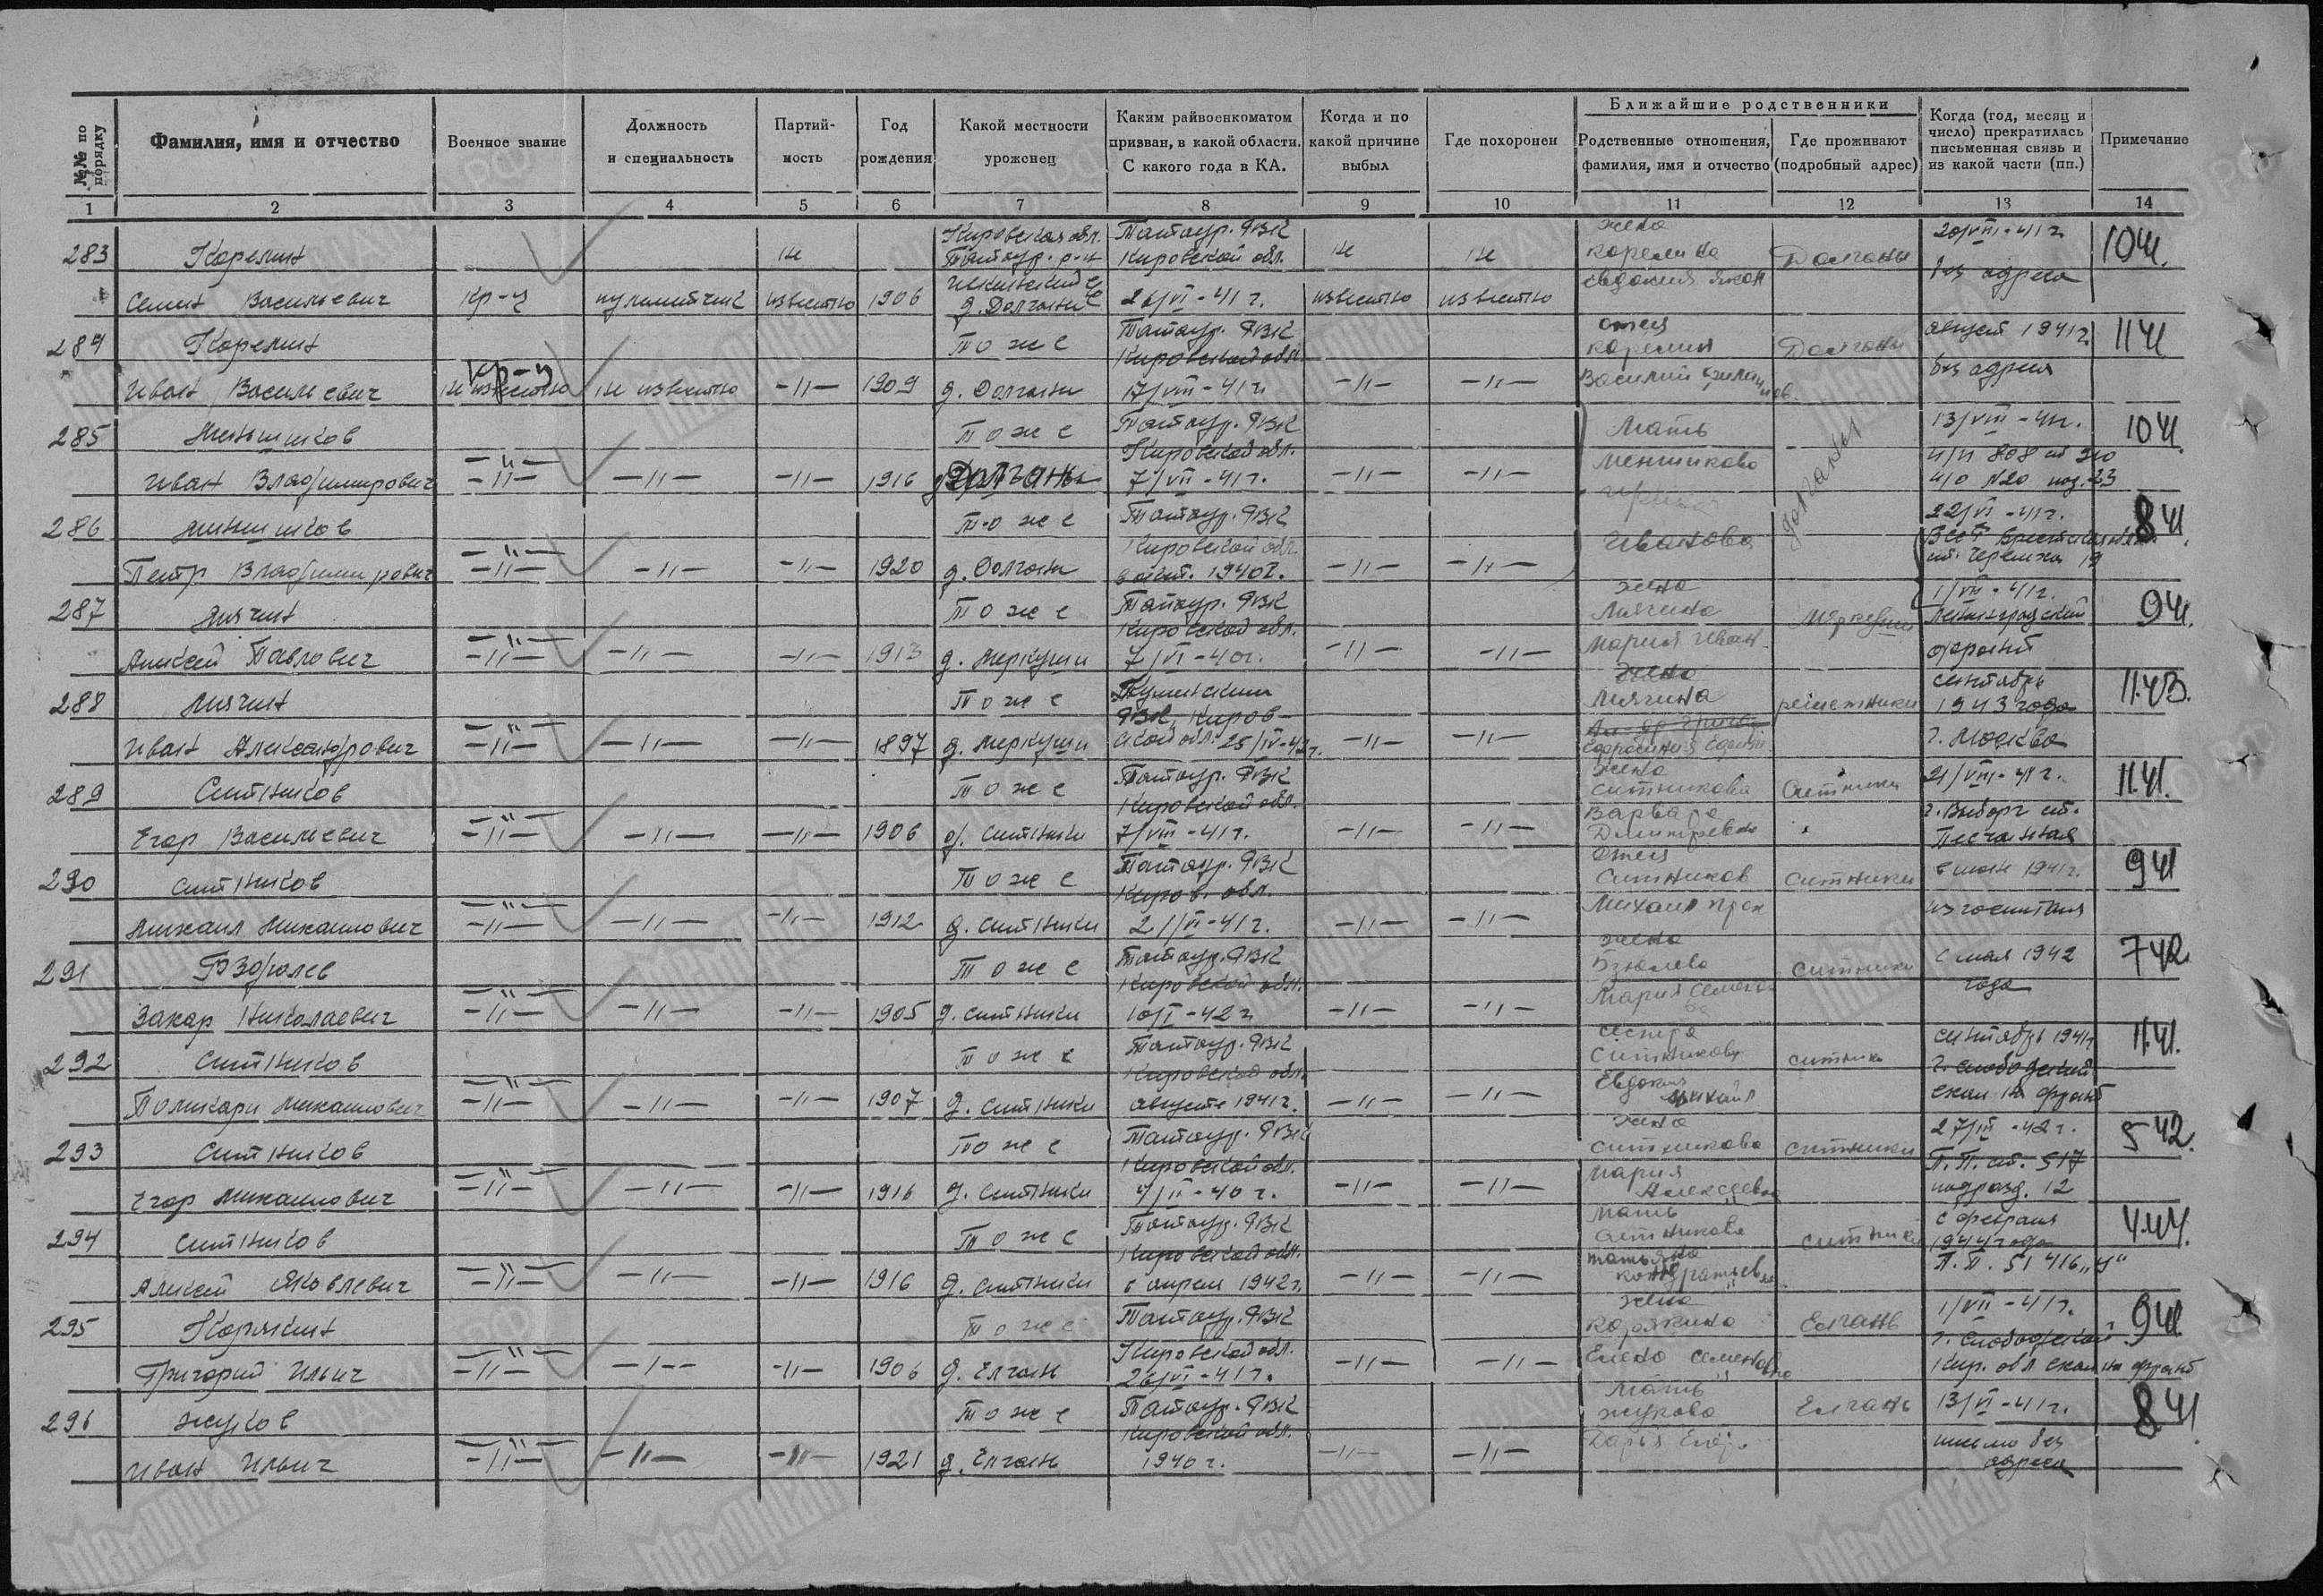 №№ по порядку
Фамилия, имя и отчество
Военное звание
Должность и специальность
Партий-ность
Год рождения
Какой местности уроженец
Каким райвоенкоматом призван, в какой области. С какого года в КА.
Когда и по какой причине выбыл
Где похоронен
Ближайшие родственники
Родственные отношения, фамилия, имя и отчество
Где проживают (подробный адрес)
Когда (год, месяц и число) прекратилась письменная связь и из какой части (пп.)
Примечание
1 2 3 4 5 6 7 8 9 10 11 12 13 14
283 Корелин не Кировская обл. Татаур. РВК не не жена 20/VIII-41 г. 10.41.
Татаур. р-н Кировской обл. Корелина Долганы
Семен Васильевич кр-ц пулеметчик известно 1906 д. Долганы 26/VI-41 г. известно известно Евдокия без адреса
284 Корелин То же Татаур. РВК отец август 1941 г. 11.41
кр-ц Кировской обл. Корелин Долганы
Иван Васильевич не известно не известно -"- 1909 д. Долганы 17/VIII-41 г. -"- -"- Василий без адреса
285 Меньшиков То же Татаур. РВК Мать 13/VIII-41 г. 10.41.
-"- Кировской обл. Меншикова Долганы
Иван Владимирович -"- -"- -"- 1916 Долганы 7/VII-41 г. -"- -"- п/о №20
286 Меньшиков То же Татаур. РВК 22/VI-41 г. 8.41.
-"- Кировской обл. Иванова
Петр Владимирович -"- -"- -"- 1920 д. Долганы 1940 г. -"- -"- ст. Черемха
287 Мячин То же Татаур. РВК жена 1/VII-41 г. 9.41.
-"- Кировской обл. Мячина Меркуши Ленинградский
Алексей Павлович -"- -"- -"- 1913 д. Меркуши 7/VI-40 г. -"- -"- Мария Иван. фронт
288 Мячин То же Тужинским жена сентябрь 11.43.
-"- РВК, Киров- Мячина решетники 1943 года
Иван Александрович -"- -"- -"- 1897 д. Меркуши ской обл. -"- -"- г. Москва
289 Ситников То же Татаур. РВК жена 21/VIII-41 г. 11.41.
-"- Кировской обл. Ситникова Ситники г. Выборг ст.
Егор Васильевич -"- -"- -"- 1906 д. Ситники 7/VIII-41 г. -"- -"- Варвара Дмитревна Песчаная
290 Ситников То же Татаур. РВК Отец 1941 г. 9.41
-"- Киров. обл. Ситников Ситники
Михаил Михаилович -"- -"- -"- 1912 д. Ситники -"- -"- Михаил из госпиталя
291 Бзюлев То же Татаур. РВК жена с мая 1942 7.42.
-"- Кировской обл. Бзюлева Ситники года
Захар Николаевич -"- -"- -"- 1905 д. Ситники 10/I-42 г. -"- -"- Мария Семенов
292 Ситников То же Татаур. РВК сестра сентябрь 1941 г. 11.41.
-"- Кировской обл. Ситникова Ситники г. Слободский
Поликарп Михаилович -"- -"- -"- 1907 д. Ситники август 1941 г. -"- -"- Евдокия Михайл ехал на фронт
293 Ситников То же Татаур. РВК жена 27/III-42 г. 5.42.
-"- Кировской обл. Ситникова Ситники П.П. ст. 517
Егор Михаилович -"- -"- -"- 1916 д. Ситники -40 г. -"- -"- Мария Алексеевна подразд. 12
294 Ситников То же Татаур. РВК Мать с февраля 4.44.
-"- Кировской обл. Ситникова Ситники 1944 года
Алексей Яковлевич -"- -"- -"- 1916 д. Ситники с апреля 1942 г. -"- -"- Татьяна Кондратьевна П.П. 51416 „У"
295 Корякин То же Татаур. РВК жена 1/VII-41 г. 9.41.
-"- Кировской обл. Корякина Елгань г. Слободской
Григорий Ильич -"- -"- -"- 1906 д. Елгань 26/VI-41 г. -"- -"- Елена Семеновна Кир. обл ехал на фронт
296 Жуков То же Татаур. РВК Мать 13/VI-41 г. 8.41
-"- Кировской обл. Жукова Елгань
Иван Ильич -"- -"- -"- 1921 д. Елгань 1940 г. -"- -"- Дарья письмо без адреса
Мемориал